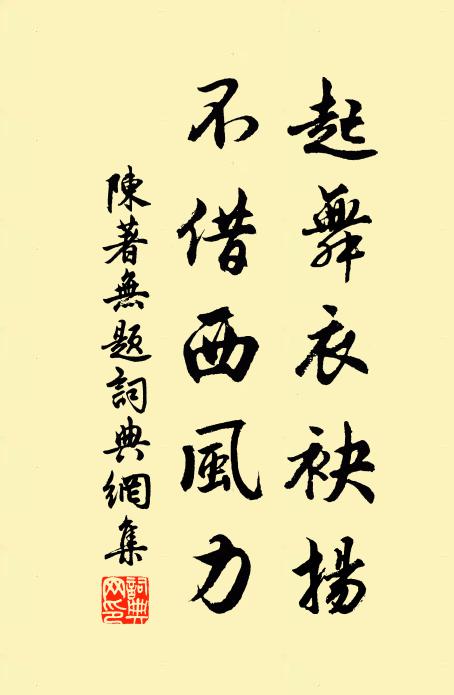 起舞衣袂揚
不借西風力
陳著無題詞典網集
詞典網印